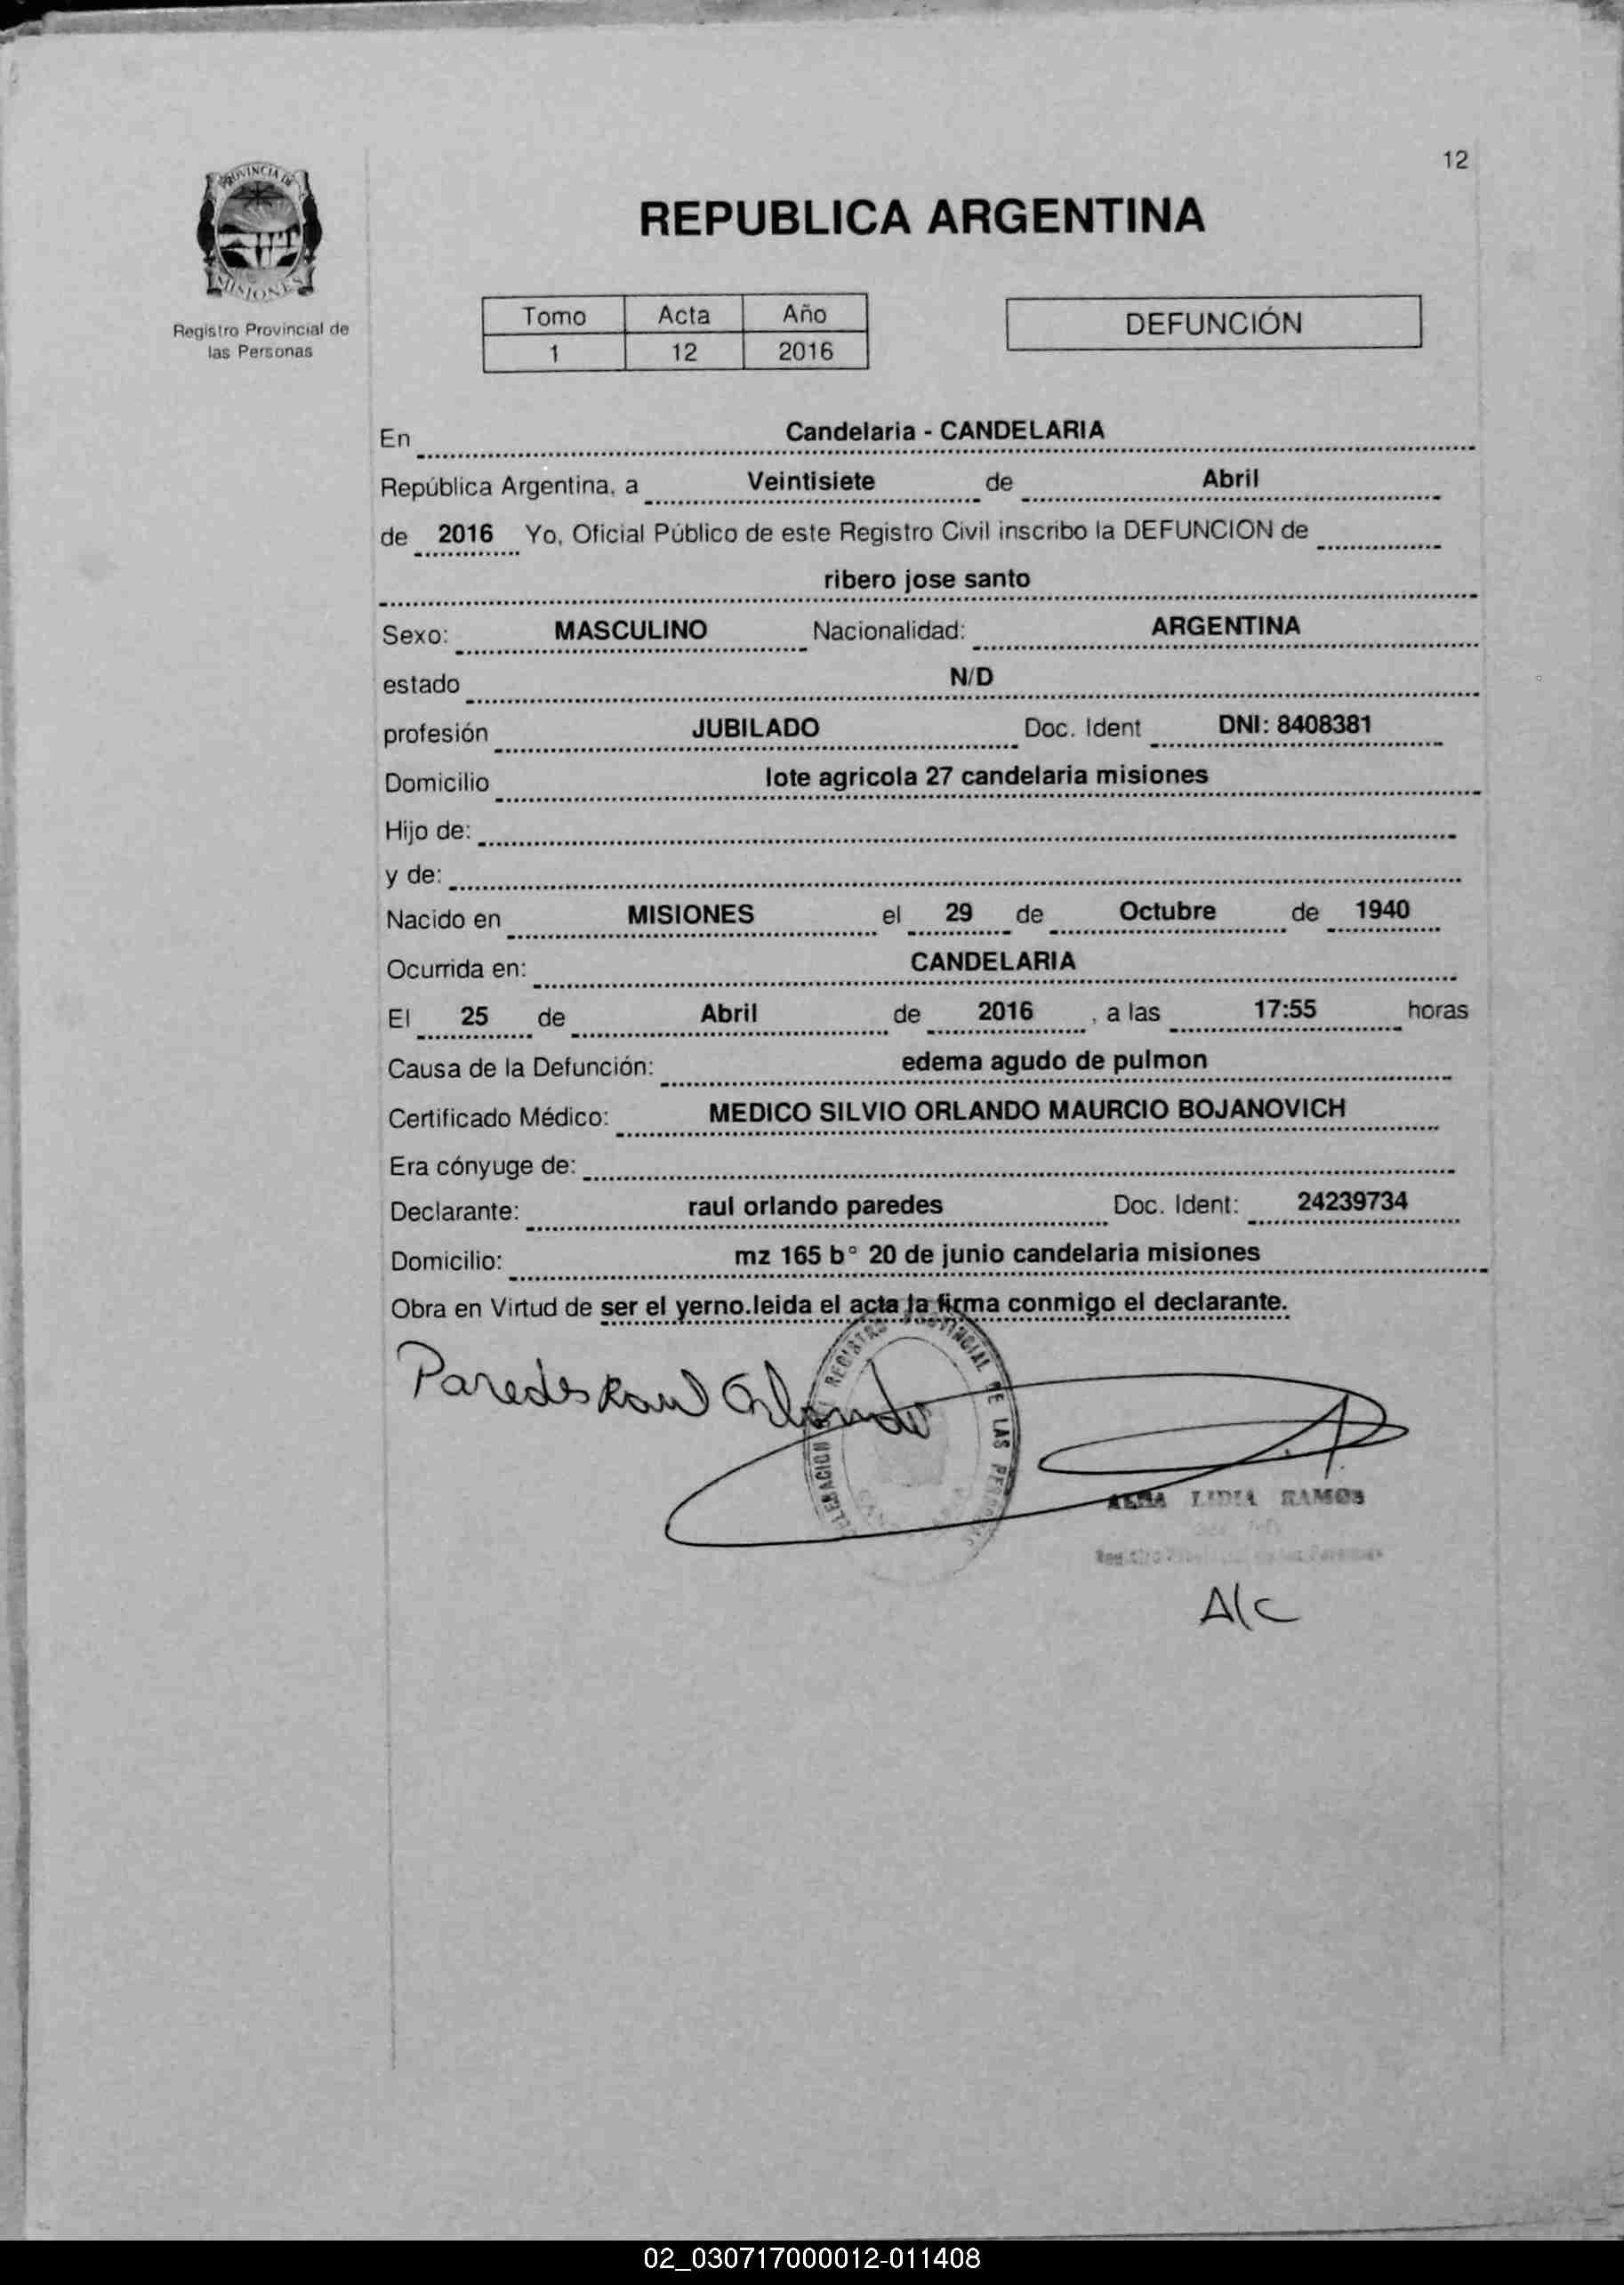 12
PROVINCIA DE
MISIONES
Registro Provincial de
las Personas
REPUBLICA ARGENTINA
Tomo Acta Año
1 12 2016
DEFUNCIÓN
En Candelaria - CANDELARIA
República Argentina, a Veintisiete de Abril
de 2016 Yo, Oficial Público de este Registro Civil inscribo la DEFUNCION de
ribero jose santo
Sexo: MASCULINO Nacionalidad: ARGENTINA
estado N/D
profesión JUBILADO Doc. Ident DNI: 8408381
Domicilio lote agricola 27 candelaria misiones
Hijo de:
y de:
Nacido en MISIONES el 29 de Octubre de 1940
Ocurrida en: CANDELARIA
El 25 de Abril de 2016 , a las 17:55 horas
Causa de la Defunción: edema agudo de pulmon
Certificado Médico: MEDICO SILVIO ORLANDO MAURCIO BOJANOVICH
Era cónyuge de:
Declarante: raul orlando paredes Doc. Ident: 24239734
Domicilio: mz 165 b° 20 de junio candelaria misiones
Obra en Virtud de ser el yerno.leida el acta la firma conmigo el declarante.
Paredes Raul Orlando
REGISTRO PROVINCIAL DE LAS
LIDIA RAMOS
A/C
02_030717000012-011408